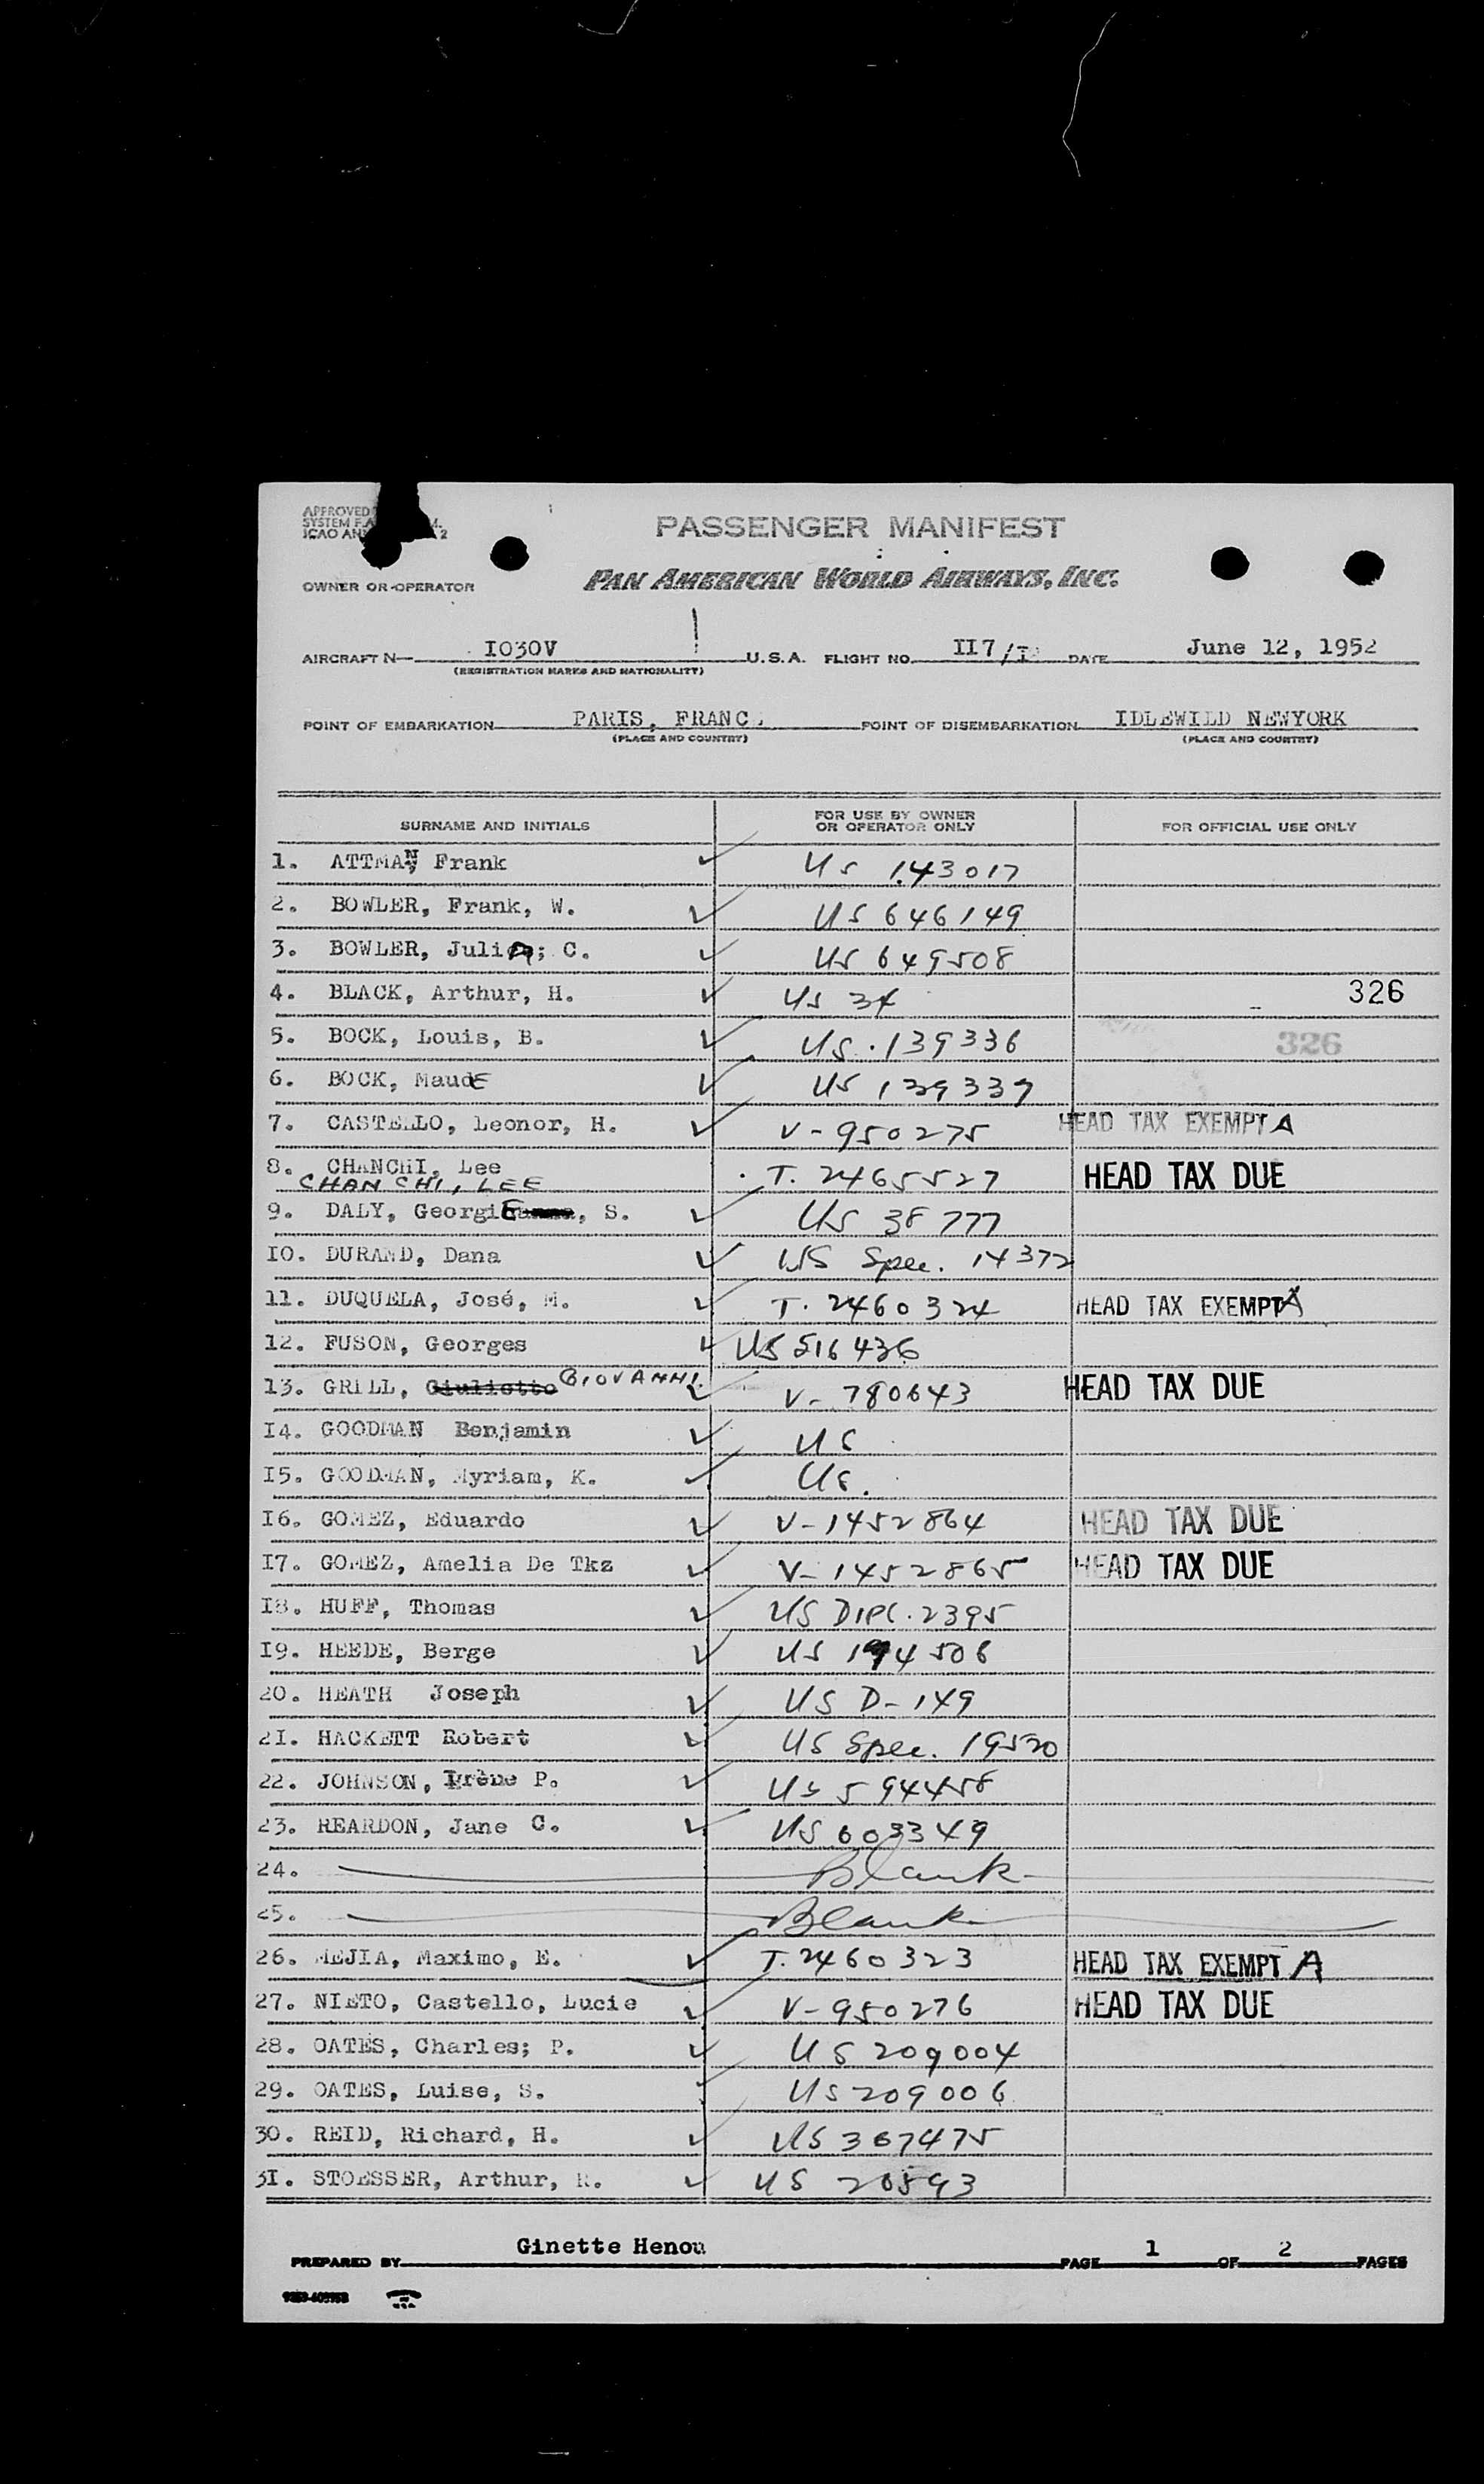 APPROVED
SYSTEM F.A M.
ICAO AN 2
PASSENGER MANIFEST
OWNER OR OPERATOR
PAN AMERICAN WORLD AIRWAYS, INC.
AIRCRAFT N— I030V U.S.A. FLIGHT NO. II7/ DATE June 12, 1952
(REGISTRATION MARKS AND NATIONALITY)
POINT OF EMBARKATION PARIS, FRANC POINT OF DISEMBARKATION IDLEWILD NEWYORK
(PLACE AND COUNTRY) (PLACE AND COUNTRY)
SURNAME AND INITIALS FOR USE BY OWNER OR OPERATOR ONLY FOR OFFICIAL USE ONLY
1. ATTMAN, Frank ✓ US 143017
2. BOWLER, Frank, W. ✓ US 646149
3. BOWLER, Julia; C. ✓ US 649508
4. BLACK, Arthur, H. ✓ US 34 326
5. BOCK, Louis, B. ✓ US.139336 326
6. BOCK, MaudE ✓ US 139337
7. CASTELLO, Leonor, H. ✓ V-950275 HEAD TAX EXEMPT A
8. CHANCHI, Lee T. 2465527 HEAD TAX DUE
CHAN CHI, LEE
9. DALY, GeorgiE, S. ✓ US 38777
I0. DURAND, Dana ✓ US Spec. 14372
11. DUQUELA, José, M. ✓ T. 2460324 HEAD TAX EXEMPT A
12. FUSON, Georges ✓ US 516436
I3. GRILL, Giuliotto GIOVANNI ✓ V- 780643 HEAD TAX DUE
I4. GOODMAN Benjamin ✓ US
I5. GOODMAN, Myriam, K. ✓ US.
I6. GOMEZ, Eduardo ✓ V-1452864 HEAD TAX DUE
I7. GOMEZ, Amelia De Tkz ✓ V-1452865 HEAD TAX DUE
I8. HUFF, Thomas ✓ US DIPL. 2395
I9. HEEDE, Berge ✓ US 194506
20. HEATH Joseph ✓ US D-149
21. HACKETT Robert ✓ US Spec. 19520
22. JOHNSON, Irène P. ✓ US 594458
23. REARDON, Jane C. ✓ US 603349
24. Blank
25. Blank
26. MEJIA, Maximo, E. ✓ T. 2460323 HEAD TAX EXEMPT A
27. NIETO, Castello, Lucie ✓ V-950276 HEAD TAX DUE
28. OATES, Charles; P. ✓ US 209004
29. OATES, Luise, S. ✓ US 209006
30. REID, Richard, H. ✓ US 367475
3I. STOESSER, Arthur, R. ✓ US 20593
PREPARED BY Ginette Henou PAGE 1 OF 2 PAGES